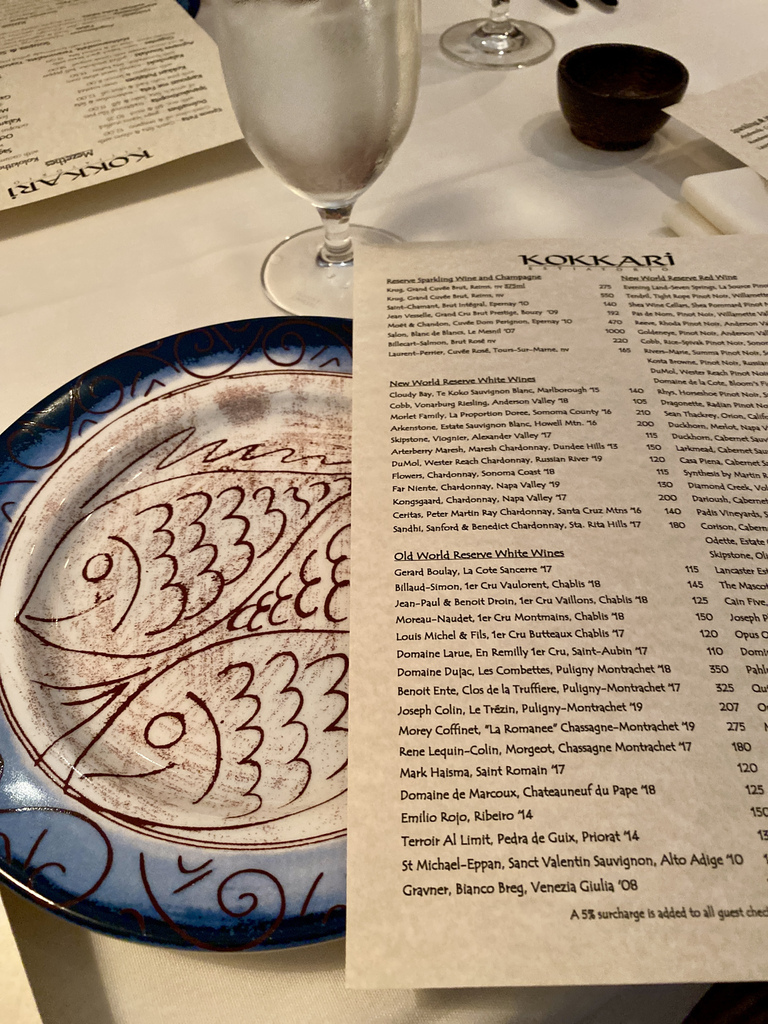 KOKKARI
ESTIATORIO
Reserve Sparkling Wine and Champagne
Krug, Grand Cuvée Brut, Reims, nv 375ml 275
Krug, Grand Cuvée Brut, Reims, nv 550
Saint-Chamant, Brut Intégral, Epernay '10 140
Jean Vesselle, Grand Cru Brut Prestige, Bouzy '09 192
Moët & Chandon, Cuvée Dom Perignon, Epernay '10 470
Salon, Blanc de Blancs, Le Mesnil '07 1000
Billecart-Salmon, Brut Rosé nv 220
Laurent-Perrier, Cuvée Rosé, Tours-Sur-Marne, nv 165
New World Reserve White Wines
Cloudy Bay, Te Koko Sauvignon Blanc, Marlborough '15 140
Cobb, Vonarburg Riesling, Anderson Valley '18 105
Morlet Family, La Proportion Doree, Somoma County '16 210
Arkenstone, Estate Sauvignon Blanc, Howell Mtn. '16 200
Skipstone, Viognier, Alexander Valley '17 115
Arterberry Maresh, Maresh Chardonnay, Dundee Hills '13 150
DuMol, Wester Reach Chardonnay, Russian River '19 120
Flowers, Chardonnay, Sonoma Coast '18 115
Far Niente, Chardonnay, Napa Valley '19 130
Kongsgaard, Chardonnay, Napa Valley '17 200
Ceritas, Peter Martin Ray Chardonnay, Santa Cruz Mtns '16 140
Sandhi, Sanford & Benedict Chardonnay, Sta. Rita Hills '17 180
Old World Reserve White Wines
Gerard Boulay, La Cote Sancerre '17 115
Billaud-Simon, 1er Cru Vaulorent, Chablis '18 145
Jean-Paul & Benoit Droin, 1er Cru Vaillons, Chablis '18 125
Moreau-Naudet, 1er Cru Montmains, Chablis '18 150
Louis Michel & Fils, 1er Cru Butteaux Chablis '17 120
Domaine Larue, En Remilly 1er Cru, Saint-Aubin '17 110
Domaine Dujac, Les Combettes, Puligny Montrachet '18 350
Benoit Ente, Clos de la Truffiere, Puligny-Montrachet '17 325
Joseph Colin, Le Trézin, Puligny-Montrachet '19 207
Morey Coffinet, "La Romanee" Chassagne-Montrachet '19 275
Rene Lequin-Colin, Morgeot, Chassagne Montrachet '17 180
Mark Haisma, Saint Romain '17 120
Domaine de Marcoux, Chateauneuf du Pape '18 125
Emilio Rojo, Ribeiro '14 150
Terroir Al Limit, Pedra de Guix, Priorat '14
St Michael-Eppan, Sanct Valentin Sauvignon, Alto Adige '10
Gravner, Bianco Breg, Venezia Giulia '08
New World Reserve Red Wine
Evening Land-Seven Springs, La Source Pinot
Tendril, Tight Rope Pinot Noir, Willamette
Shea Wine Cellars, Shea Pommard Pinot
Pas de Nom, Pinot Noir, Willamette Val
Reeve, Rhoda Pinot Noir, Anderson Va
Goldeneye, Pinot Noir, Anderson Val
Cobb, Rice-Spivak Pinot Noir, Sono
Rivers-Marie, Summa Pinot Noir, S
Kosta Browne, Pinot Noir, Russian
DuMol, Wester Reach Pinot Noir
Domaine de la Cote, Bloom's Fi
Rhys, Horseshoe Pinot Noir, S
Dragonette, Radian Pinot No
Sean Thackrey, Orion, Calif
Duckhorn, Merlot, Napa V
Duckhorn, Cabernet Sauv
Larkmead, Cabernet Sau
Casa Piena, Cabernet S
Synthesis by Martin R
Diamond Creek, Vol
Darioush, Cabernet
Padis Vineyards, S
Corison, Cabern
Odette, Estate
Skipstone, Oli
Lancaster Est
The Mascot
Cain Five,
Joseph P
Opus O
Domi
Pahl
A 5% surcharge is added to all guest chec
KOKKARI
Mezethes